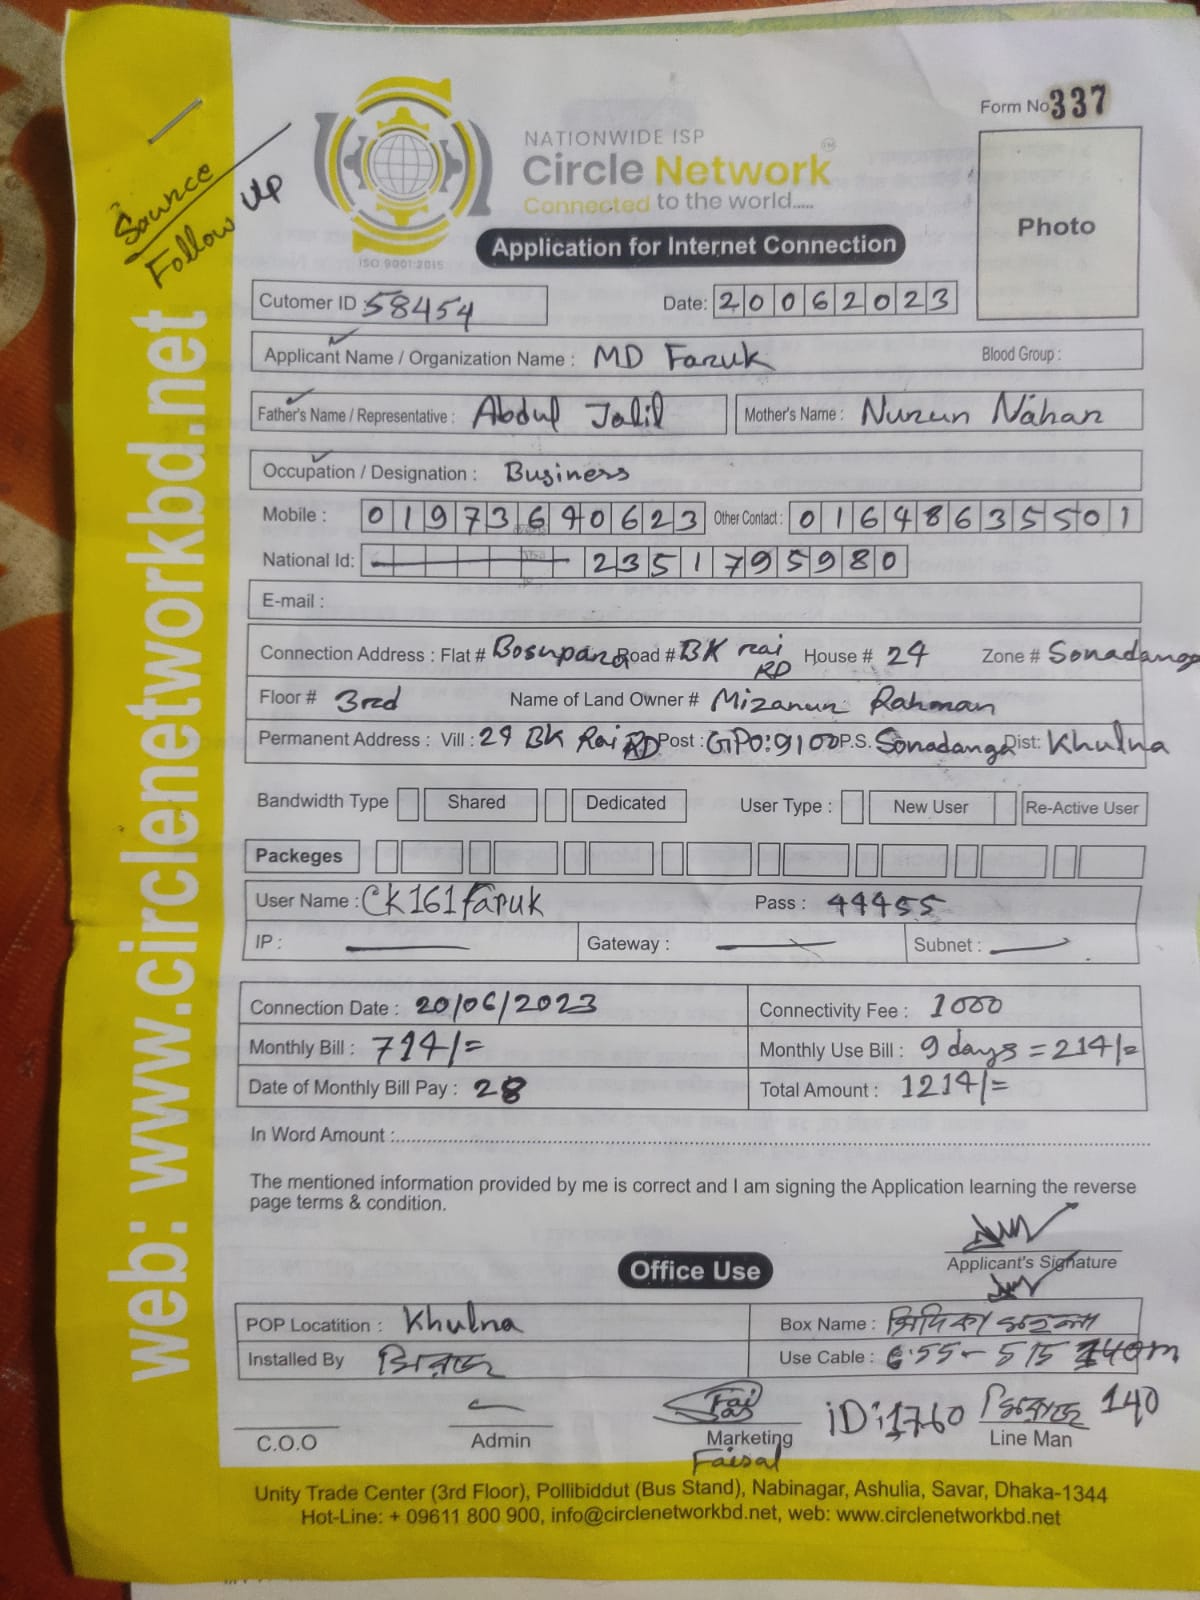 Form No 337
NATIONWIDE ISP
Circle Network
Connected to the world.....
ISO 9001:2015
Photo
Source
Follow Up
web: www.circlenetworkbd.net
Application for Internet Connection
Cutomer ID 58454 Date: 20062023
Applicant Name / Organization Name : MD Faruk Blood Group :
Father's Name / Representative : Abdul Jalil Mother's Name : Nurun Nahar
Occupation / Designation : Business
Mobile : 01973640623 Other Contact : 01648635501
National Id: 2351795980
E-mail :
Connection Address : Flat # Bosupara Road # BK rai RD House # 24 Zone # Sonadanga
Floor # 3rd Name of Land Owner # Mizanur Rahman
Permanent Address : Vill : 24 BK Rai RD Post : GPO:9100 P.S. Sonadanga Dist: Khulna
Bandwidth Type Shared Dedicated User Type : New User Re-Active User
Packeges
User Name : Ck161faruk Pass : 44455
IP : Gateway : Subnet :
Connection Date : 20/06/2023 Connectivity Fee : 1000
Monthly Bill : 714/= Monthly Use Bill : 9 days = 214/=
Date of Monthly Bill Pay : 28 Total Amount : 1214/=
In Word Amount :
The mentioned information provided by me is correct and I am signing the Application learning the reverse
page terms & condition.
Applicant's Signature
Office Use
POP Locatition : Khulna Box Name :
Installed By Use Cable : 515 140m
C.O.O Admin Marketing ID:1760 Line Man 140
Faisal
Unity Trade Center (3rd Floor), Pollibiddut (Bus Stand), Nabinagar, Ashulia, Savar, Dhaka-1344
Hot-Line: + 09611 800 900, info@circlenetworkbd.net, web: www.circlenetworkbd.net